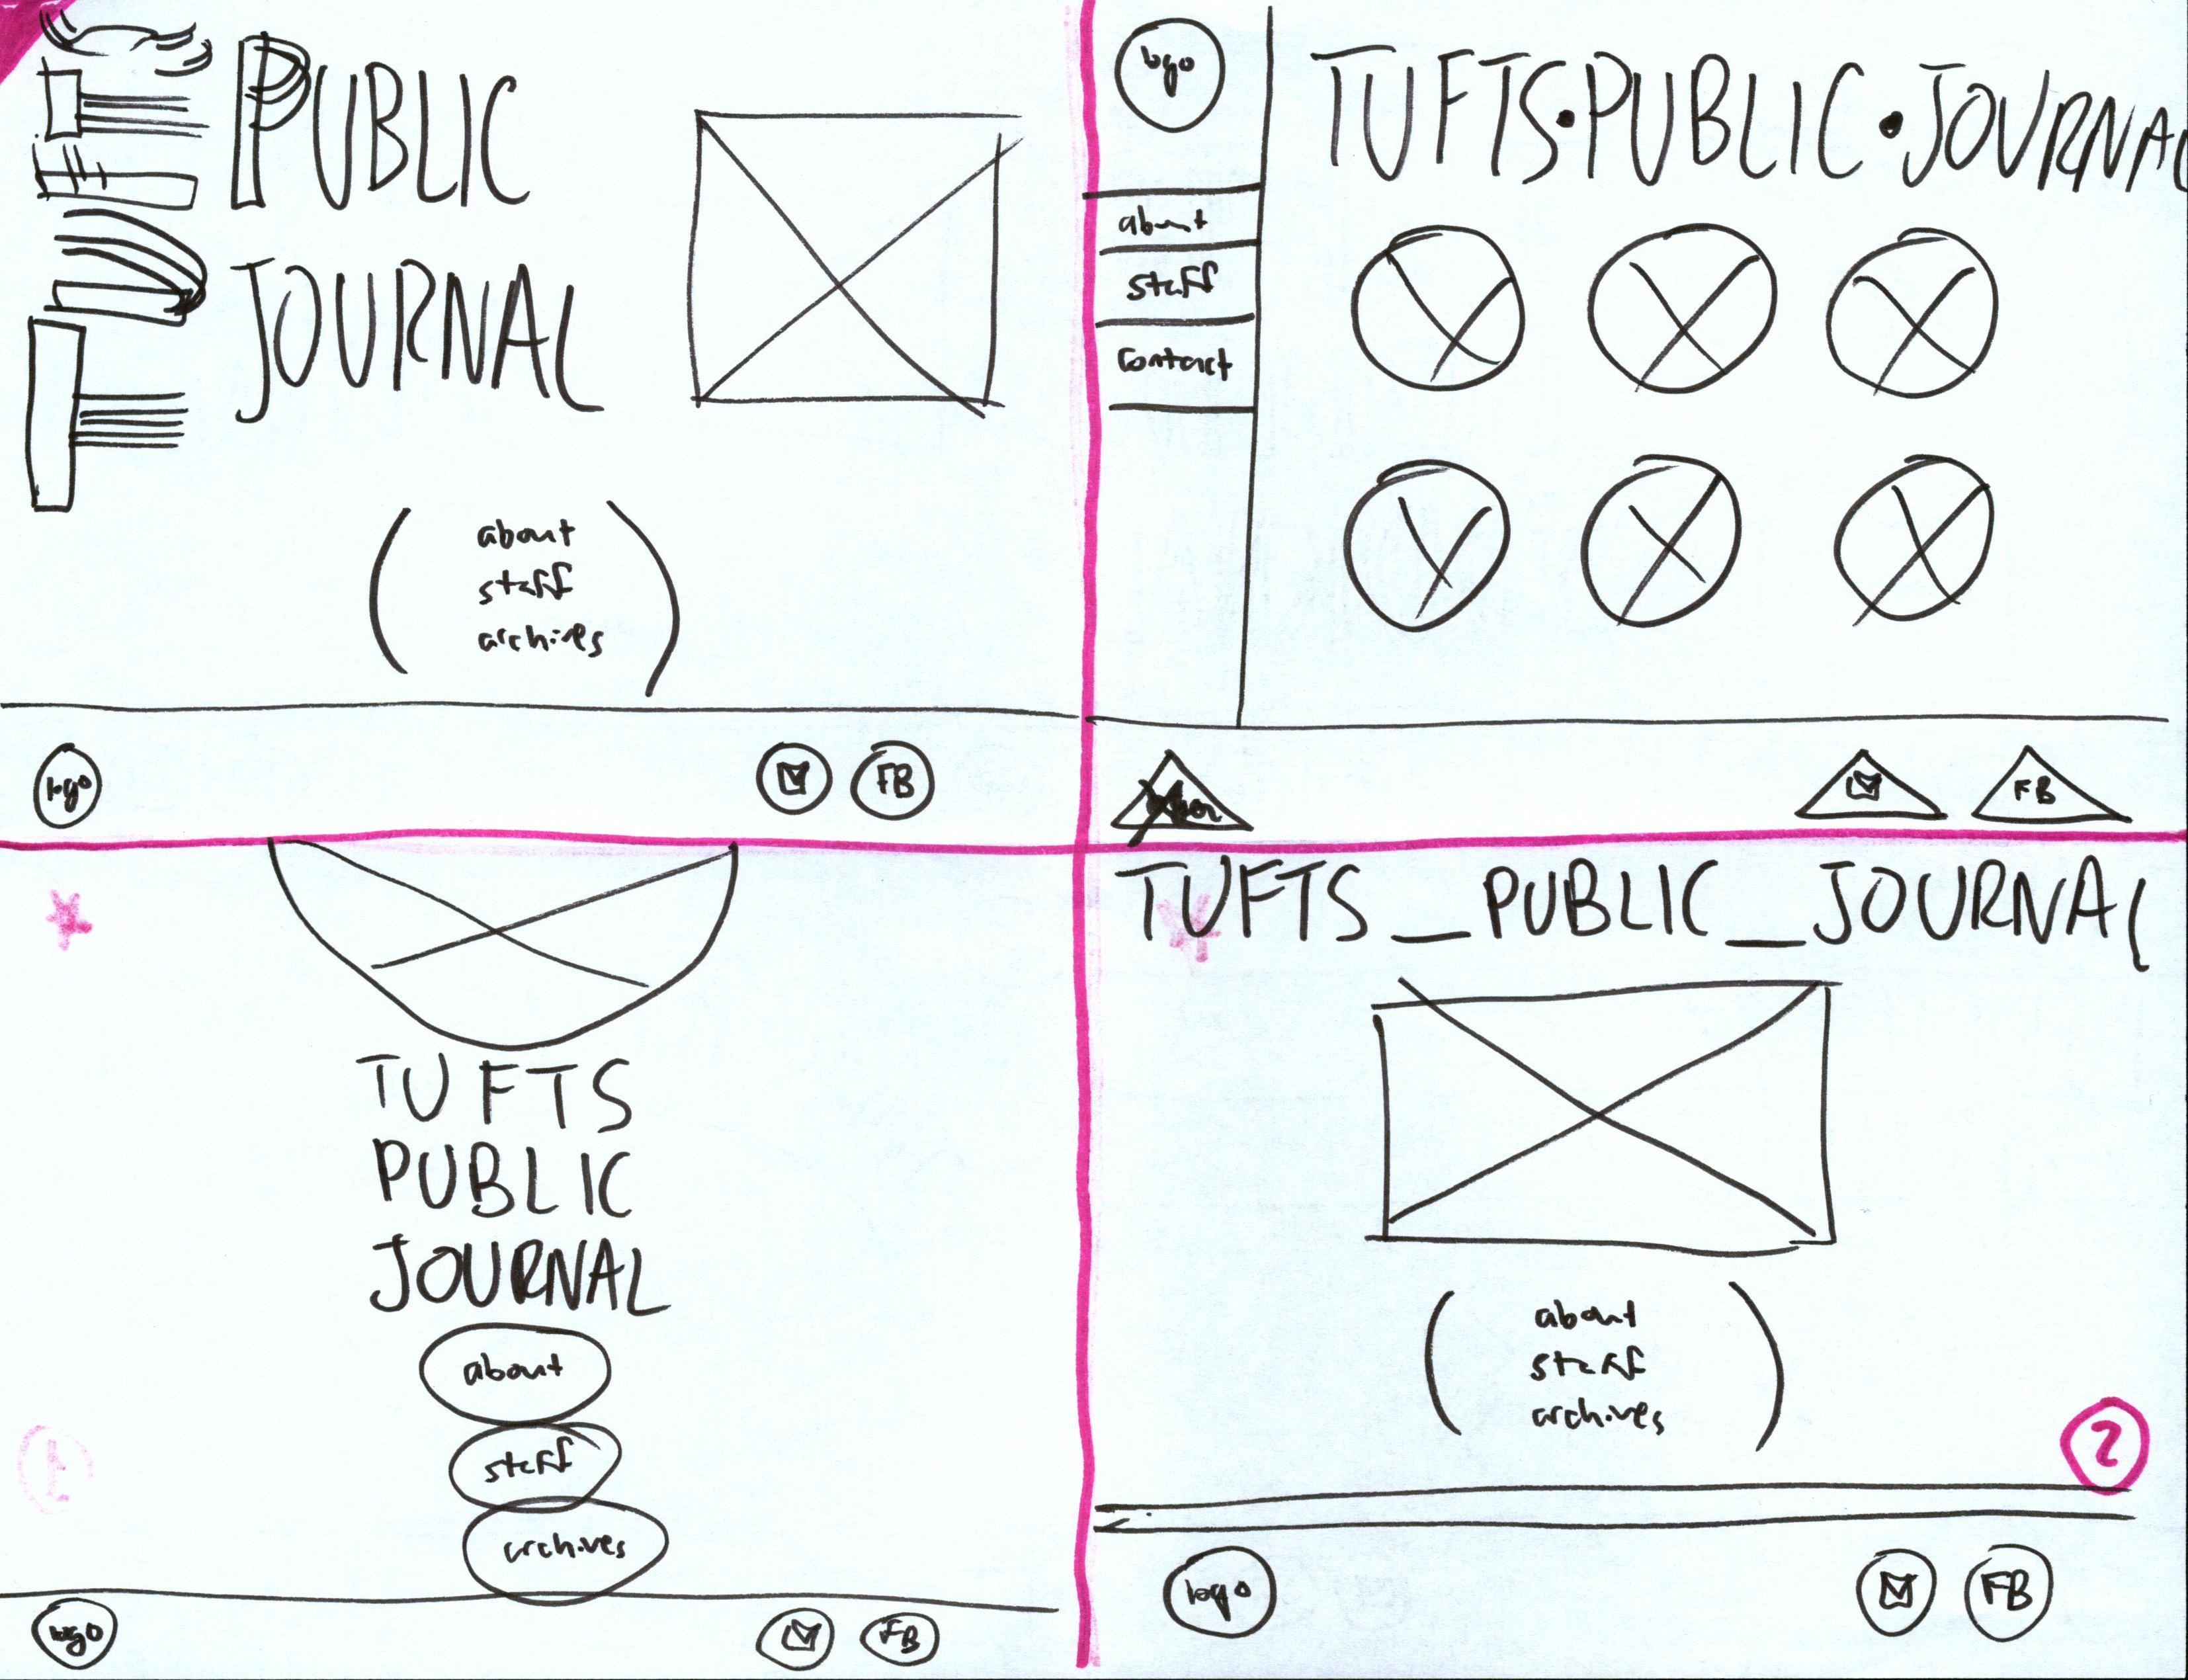 PUBLIC
JOURNAL
about
staff
archives
logo
FB
logo
TUFTS•PUBLIC•JOURNAL
about
staff
contact
FB
TUFTS
PUBLIC
JOURNAL
about
staff
archives
logo
FB
TUFTS_PUBLIC_JOURNAL
about
staff
archives
2
logo
FB